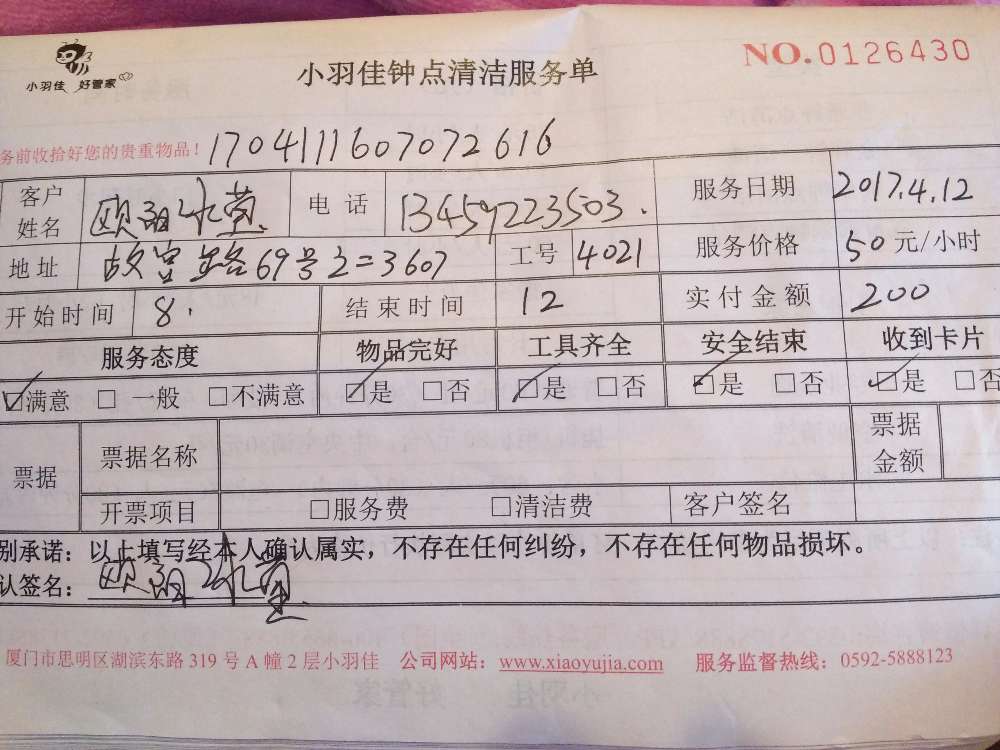 小羽佳 好管家
小羽佳钟点清洁服务单
NO.0126430
务前收拾好您的贵重物品! 1704111607072616
客户姓名 欧阳冰莹 电话 13459223503. 服务日期 2017.4.12
地址 故宫路69号之二3607 工号 4021 服务价格 50元/小时
开始时间 8. 结束时间 12 实付金额 200
服务态度 物品完好 工具齐全 安全结束 收到卡片
☑满意 □一般 □不满意 ☑是 □否 ☑是 □否 ☑是 □否 ☑是 □否
票据 票据名称 票据金额
开票项目 □服务费 □清洁费 客户签名
别承诺:以上填写经本人确认属实,不存在任何纠纷,不存在任何物品损坏。
认签名:欧阳冰莹
厦门市思明区湖滨东路 319 号 A 幢 2 层小羽佳 公司网站:www.xiaoyujia.com 服务监督热线:0592-5888123